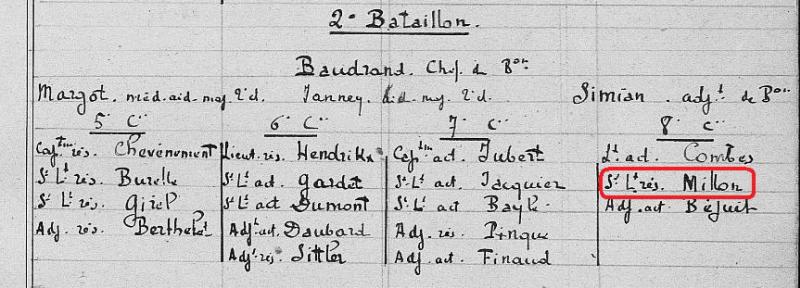 2e Bataillon.
Baudrand. Chef de Bon
Margot. méd. aid-maj 2e d. Janney. aid. maj. 2e d. Simian. adjt de Bon
5e Cie 6e Cie 7e Cie 8e Cie
Captne rés. Chevènement Lieut. rés. Hendrikx Captne act. Jubert Lt act. Combes
St Lt rés. Burelle St Lt act. Gardet St Lt act. Jacquier St Lt rés. Millon
St Lt rés. Giriel St Lt act. Dumont St Lt act. Bayle Adj. act. Béjuit
Adj. rés. Berthelet Adjt act. Daubard Adj. rés. Pinque
Adjt rés. Sittler Adj. act. Finaud